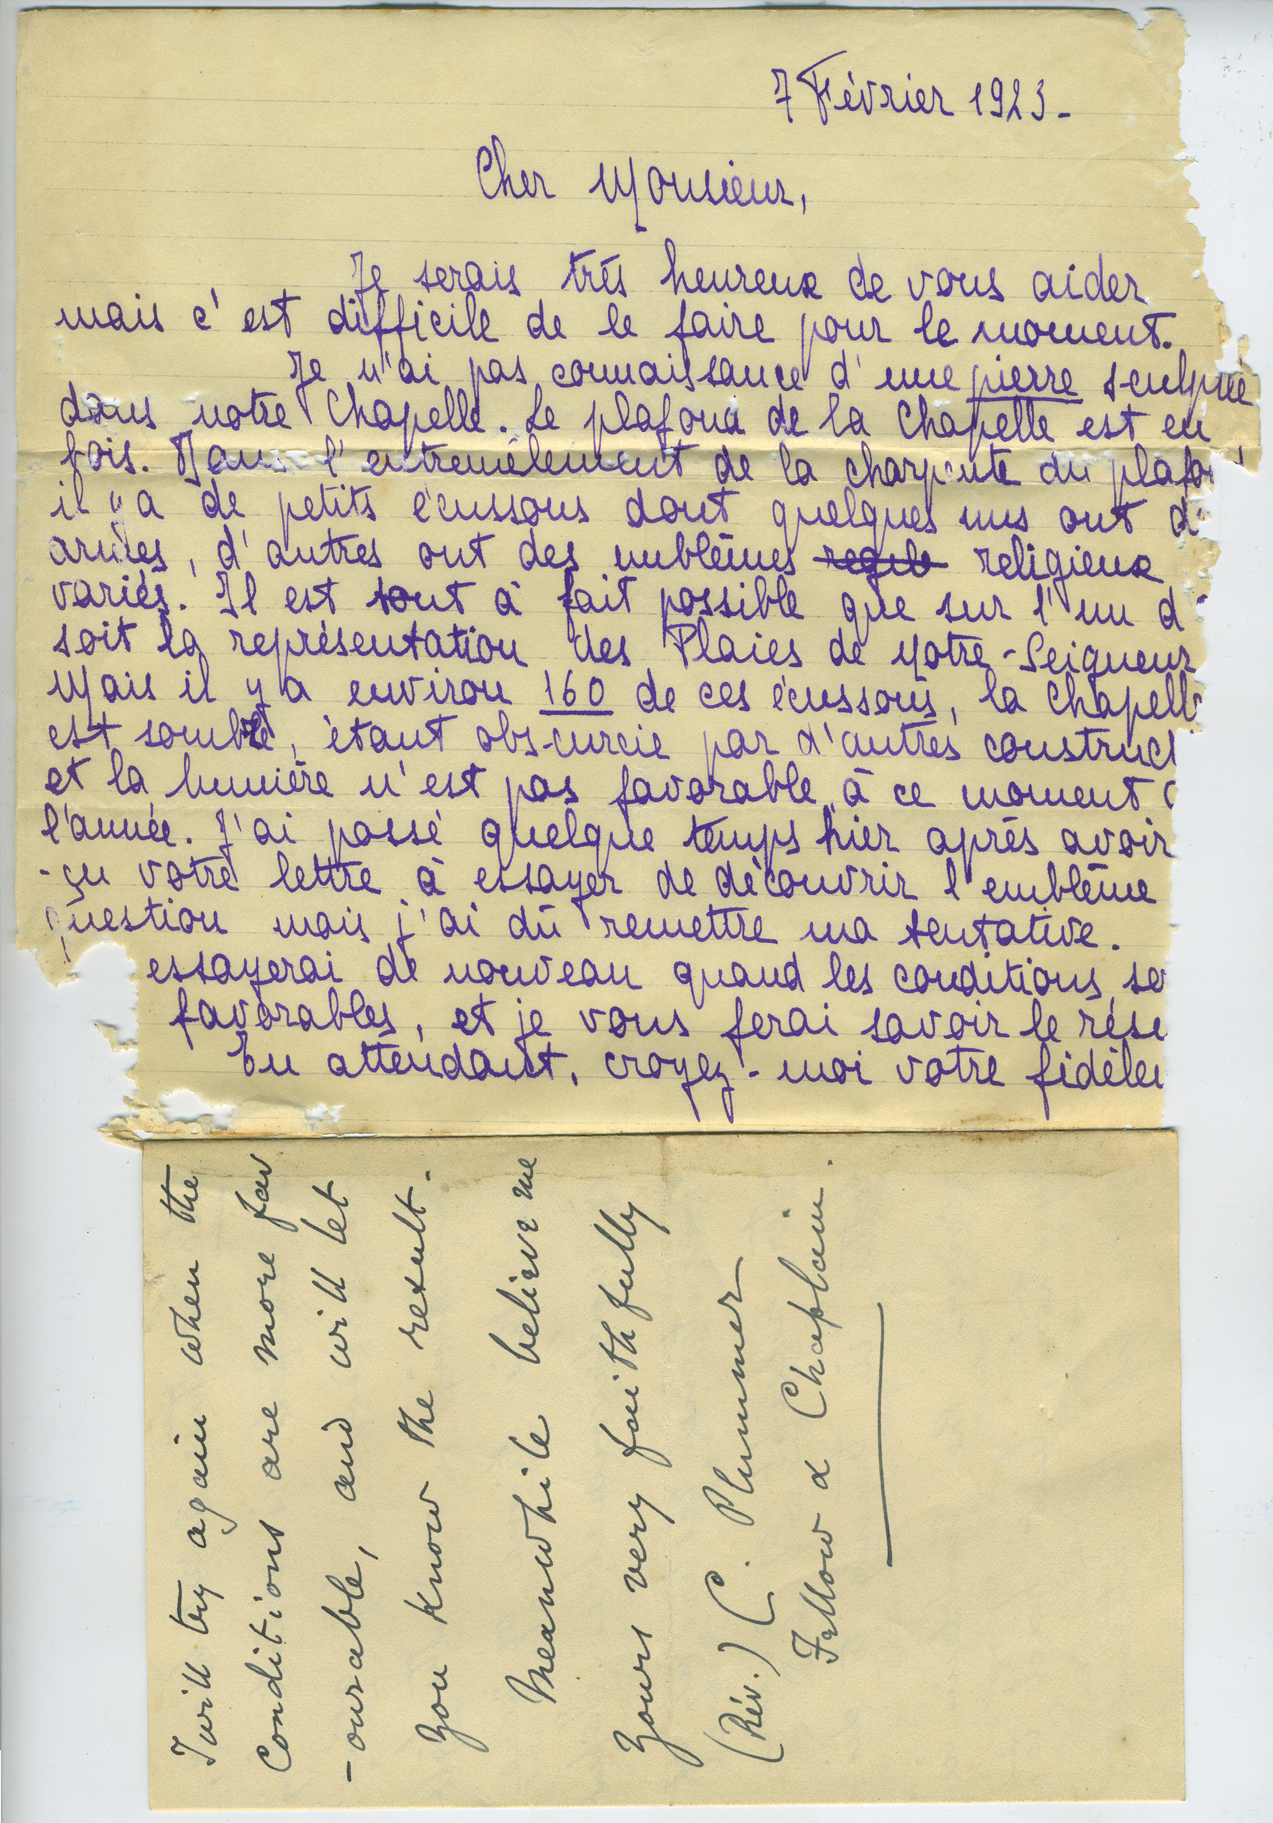 7 Février 1923-
Cher Monsieur,
Je serais très heureux de vous aider
mais c'est difficile de le faire pour le moment.
Je n'ai pas connaissance d'une pierre sculptée
dans notre Chapelle. Le plafond de la Chapelle est en
bois. Dans l'entremêlement de la charpente du plafo
il y a de petits écussons dont quelques uns ont d
armes, d'autres ont des emblèmes religieux
variés. Il est tout à fait possible que sur l'un d
soit la représentation des Plaies de Notre-Seigneur
Mais il y a environ 160 de ces écussons, la Chapell
est sombre, étant obscurcie par d'autres construct
et la lumière n'est pas favorable à ce moment
l'année. J'ai passé quelque temps hier après avoir
-çu votre lettre à essayer de découvrir l'emblème
question mais j'ai dû remettre ma tentative.
essayerai de nouveau quand les conditions se
favorables, et je vous ferai savoir le résu
En attendant, croyez-moi votre fidèle
I will try again when the
conditions are more fav
-ourable, and will let
you know the result.
Meanwhile believe me
yours very faithfully
(Rév.) C. Plummer
Fellow & Chaplain.